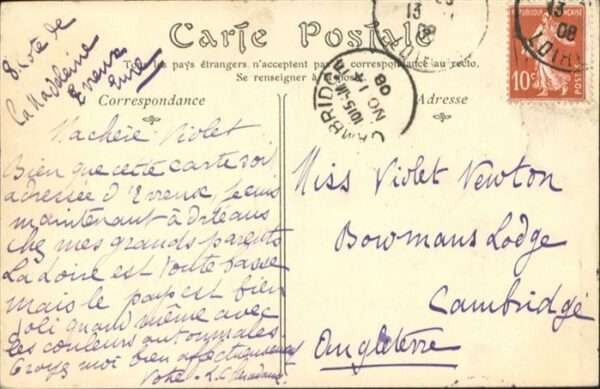 8. Cote de
La Madeleine
Evreux
Eure
Carte Postale
Tous les pays étrangers n'acceptent pas la correspondance au recto.
Se renseigner à la poste
Correspondance
Adresse
Ma chère Violet
Bien que cette carte soit
adressée d'Evreux, je suis
maintenant à Orléans
chez mes grands parents
La Loire est toute basse
mais le pays est bien
joli quand même avec
les couleurs automnales.
Croyez moi bien affectueusement
votre
Miss Violet Newton
Bowmans Lodge
Cambridge
Angleterre
CAMBRIDGE
1015 AM
NO 14
08
13
08
LOIRET
13
08
LOIRET
10c